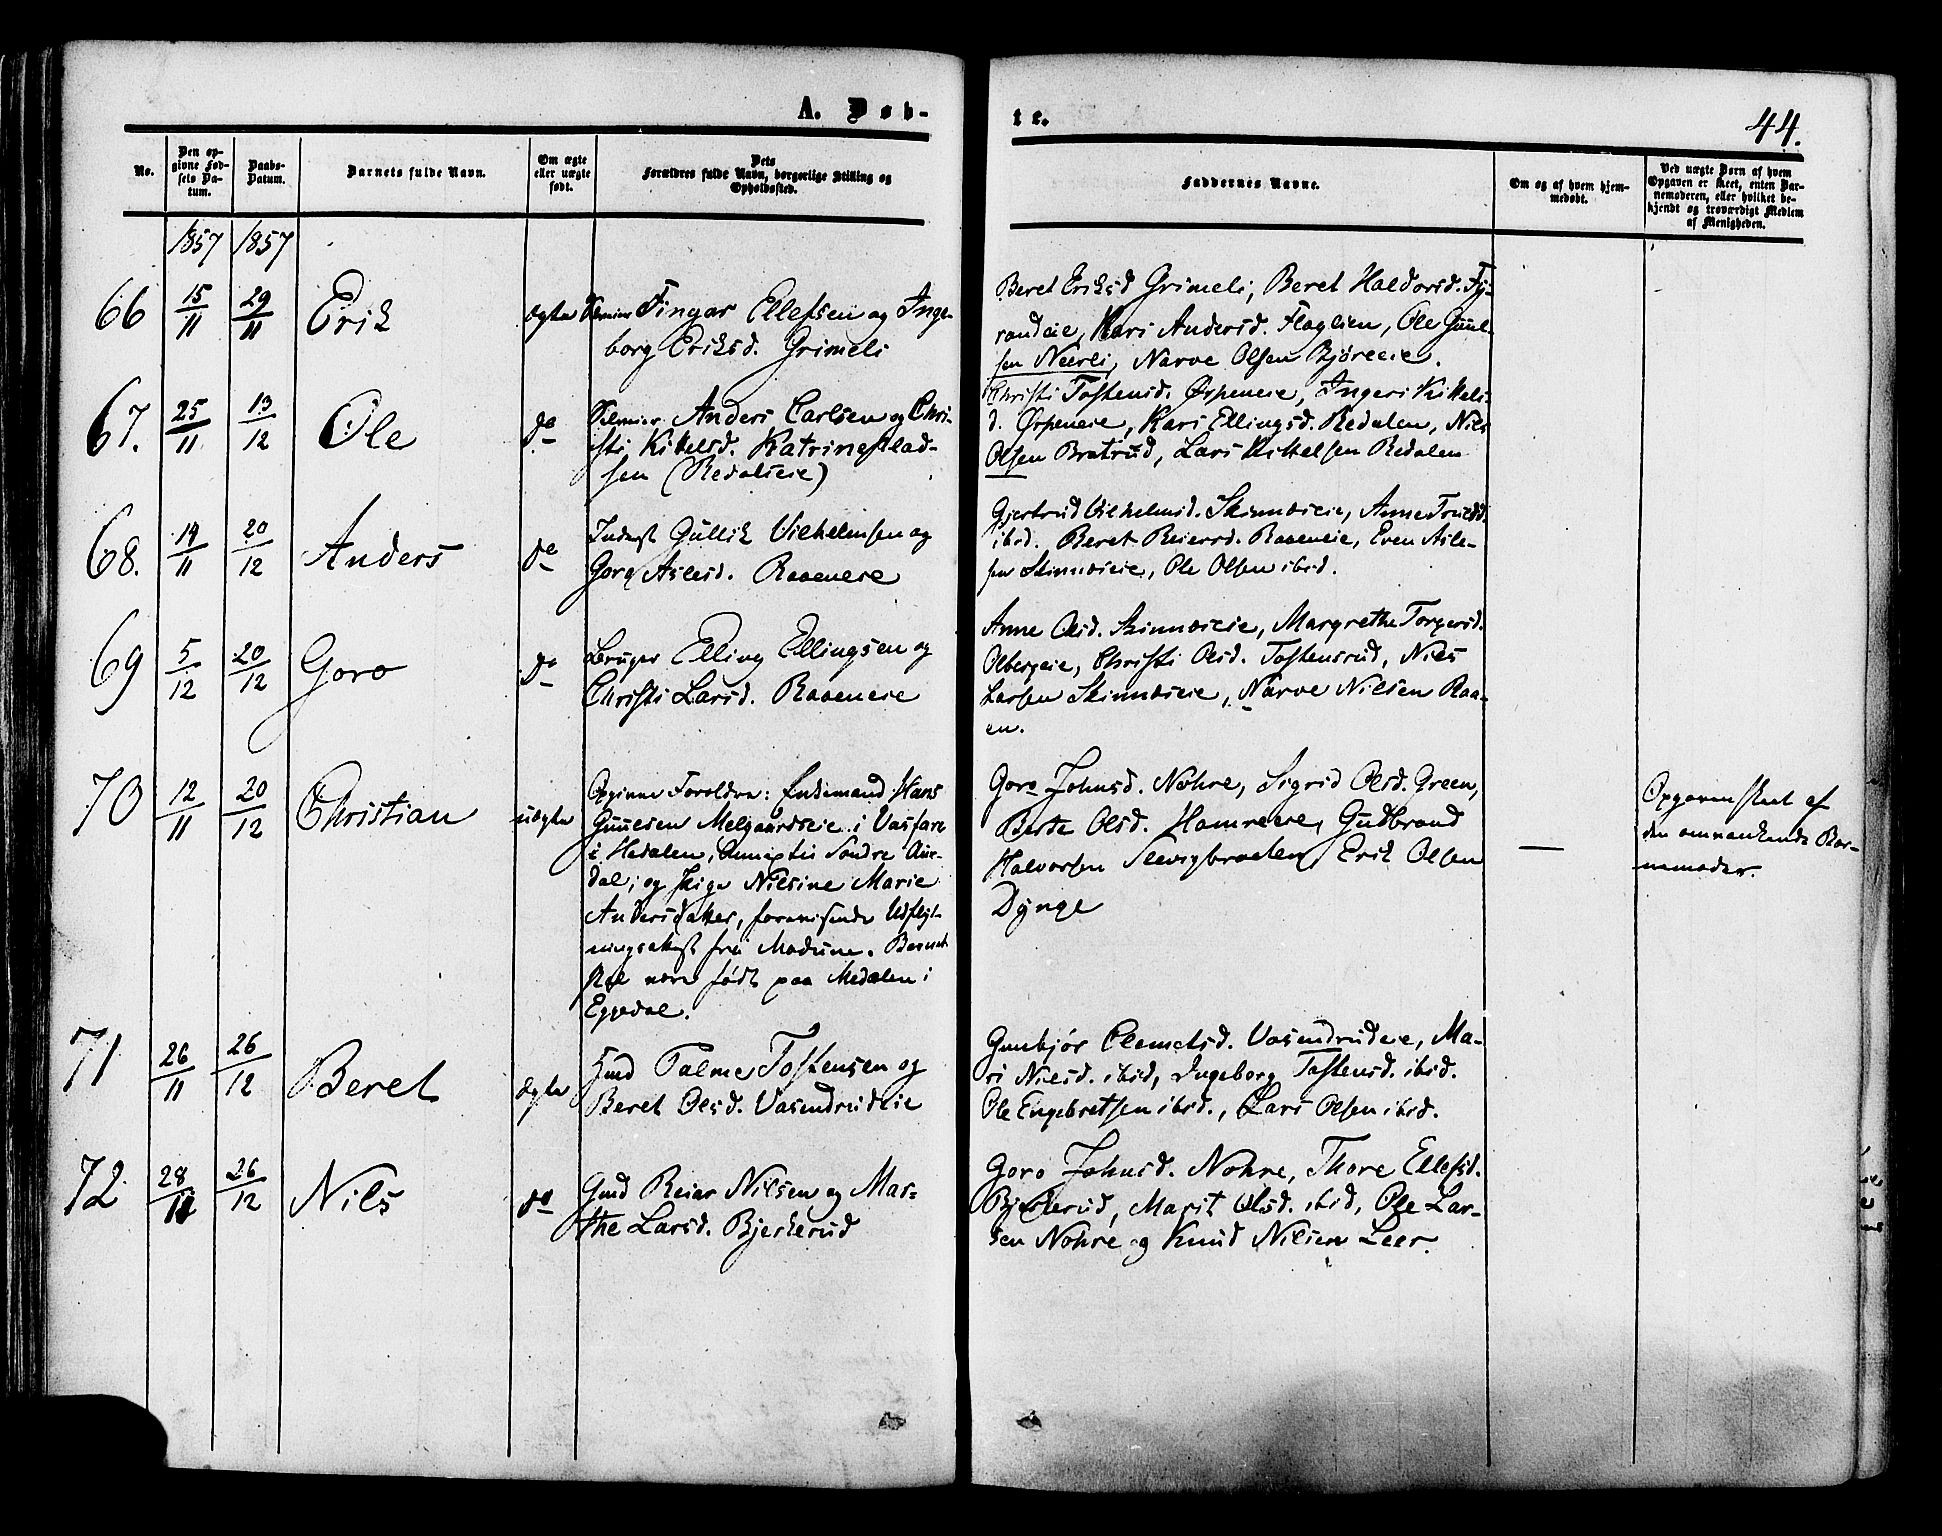 A. Døb-
te.
44.
No.
Den op-
givne Fød-
sels Da-
tum.
Daabs-
Datum.
Barnets fulde Navn.
Om ægte
eller uægte
født.
Dets
Forældres fulde Navn, borgerlige Stilling og
Opholdssted.
Faddernes Navne.
Om og af hvem hjem-
medøbt.
Ved uægte Børn af hvem
Opgaven er skeet, enten Bar-
nemoderen, eller hvilket be-
kjendt og troværdigt Medlem
af Menigheden.
1857 1857
66 15/11 29/11 Erik ægte Fingar Ellefsen og Inge-
borg Eriksd. Grimeli
Beret Eriksd Grimeli, Beret Haldorsd. Fy-
randeie, Kari Andersd. Flaglien, Ole Gúul-
sen Neerli, Narve Olsen Bjøreeie.
67. 25/11 13/12 Ole do Anders Carlsen og Chri-
sti Kittelsd. Katrineplad-
sen (Redalseie)
Christi Tostensd. Ørpeneie, Ingeri Kittels-
d. Ørpeneie, Kari Ellingsd. Redalen, Nils
Olsen Bratrud, Lars Kittelsen Redalen
68. 14/11 20/12 Anders do Inderst Gullik Vilhelmsen og
Goro Aslesd. Raaeneie
Gjertrud Vilhelmsd. Skinnæseie, Anne Truldsd.
ibid. Beret Reiersd. Raaeneie, Even Asle-
sen Skinnæseie, Ole Olsen ibid.
69 5/12 20/12 Goro do Bruger Elling Ellingsen og
Christi Larsd. Raaeneie
Anne Olsd. Skinnæseie, Margrethe Torgersd.
Olbergeie, Christi Olsd. Tostensrud, Nils
Larsen Skinnæseie, Narve Nilsen Raa-
en.
70 12/11 20/12 Christian uægte Opgivne Forældre: Enkemand Hans
Gunnesen Melgaardseie i Vasfaret
i Hedalen, Annex til Søndre Aur-
dal; og Pige Nilsine Marie
Andersdatter, forevisende Udflyt-
ningsattest fra Modum. Barnet
skal være født paa Medalen i
Eggedal.
Goro Johnsd. Nohre, Sigrid Olsd. Green,
Berte Olsd. Hamreeie, Gudbrand
Halvorsen Sevigbraaten, Erik Olsen
Dynge
—
Opgaven skeet af
den omvankende Bar-
nemoder.
71 26/11 26/12 Beret ægte Hmd Palme Tostensen og
Beret Olsd. Vasendrudeie
Gunbjør Clemetsd. Vasendrudeie, Ma-
ri Nilsd. ibid, Ingeborg Tostensd. ibid.
Ole Engebretsen ibid., Lars Olsen ibid.
72 28/11 26/12 Nils do Gmd Reier Nilsen og Mar-
the Larsd. Bjerkerud
Goro Johnsd. Nohre, Thore Ellefsd.
Bjerkerud, Marit Olsd. ibid, Ole Lar-
sen Nohre og Knud Nilsen Leer.